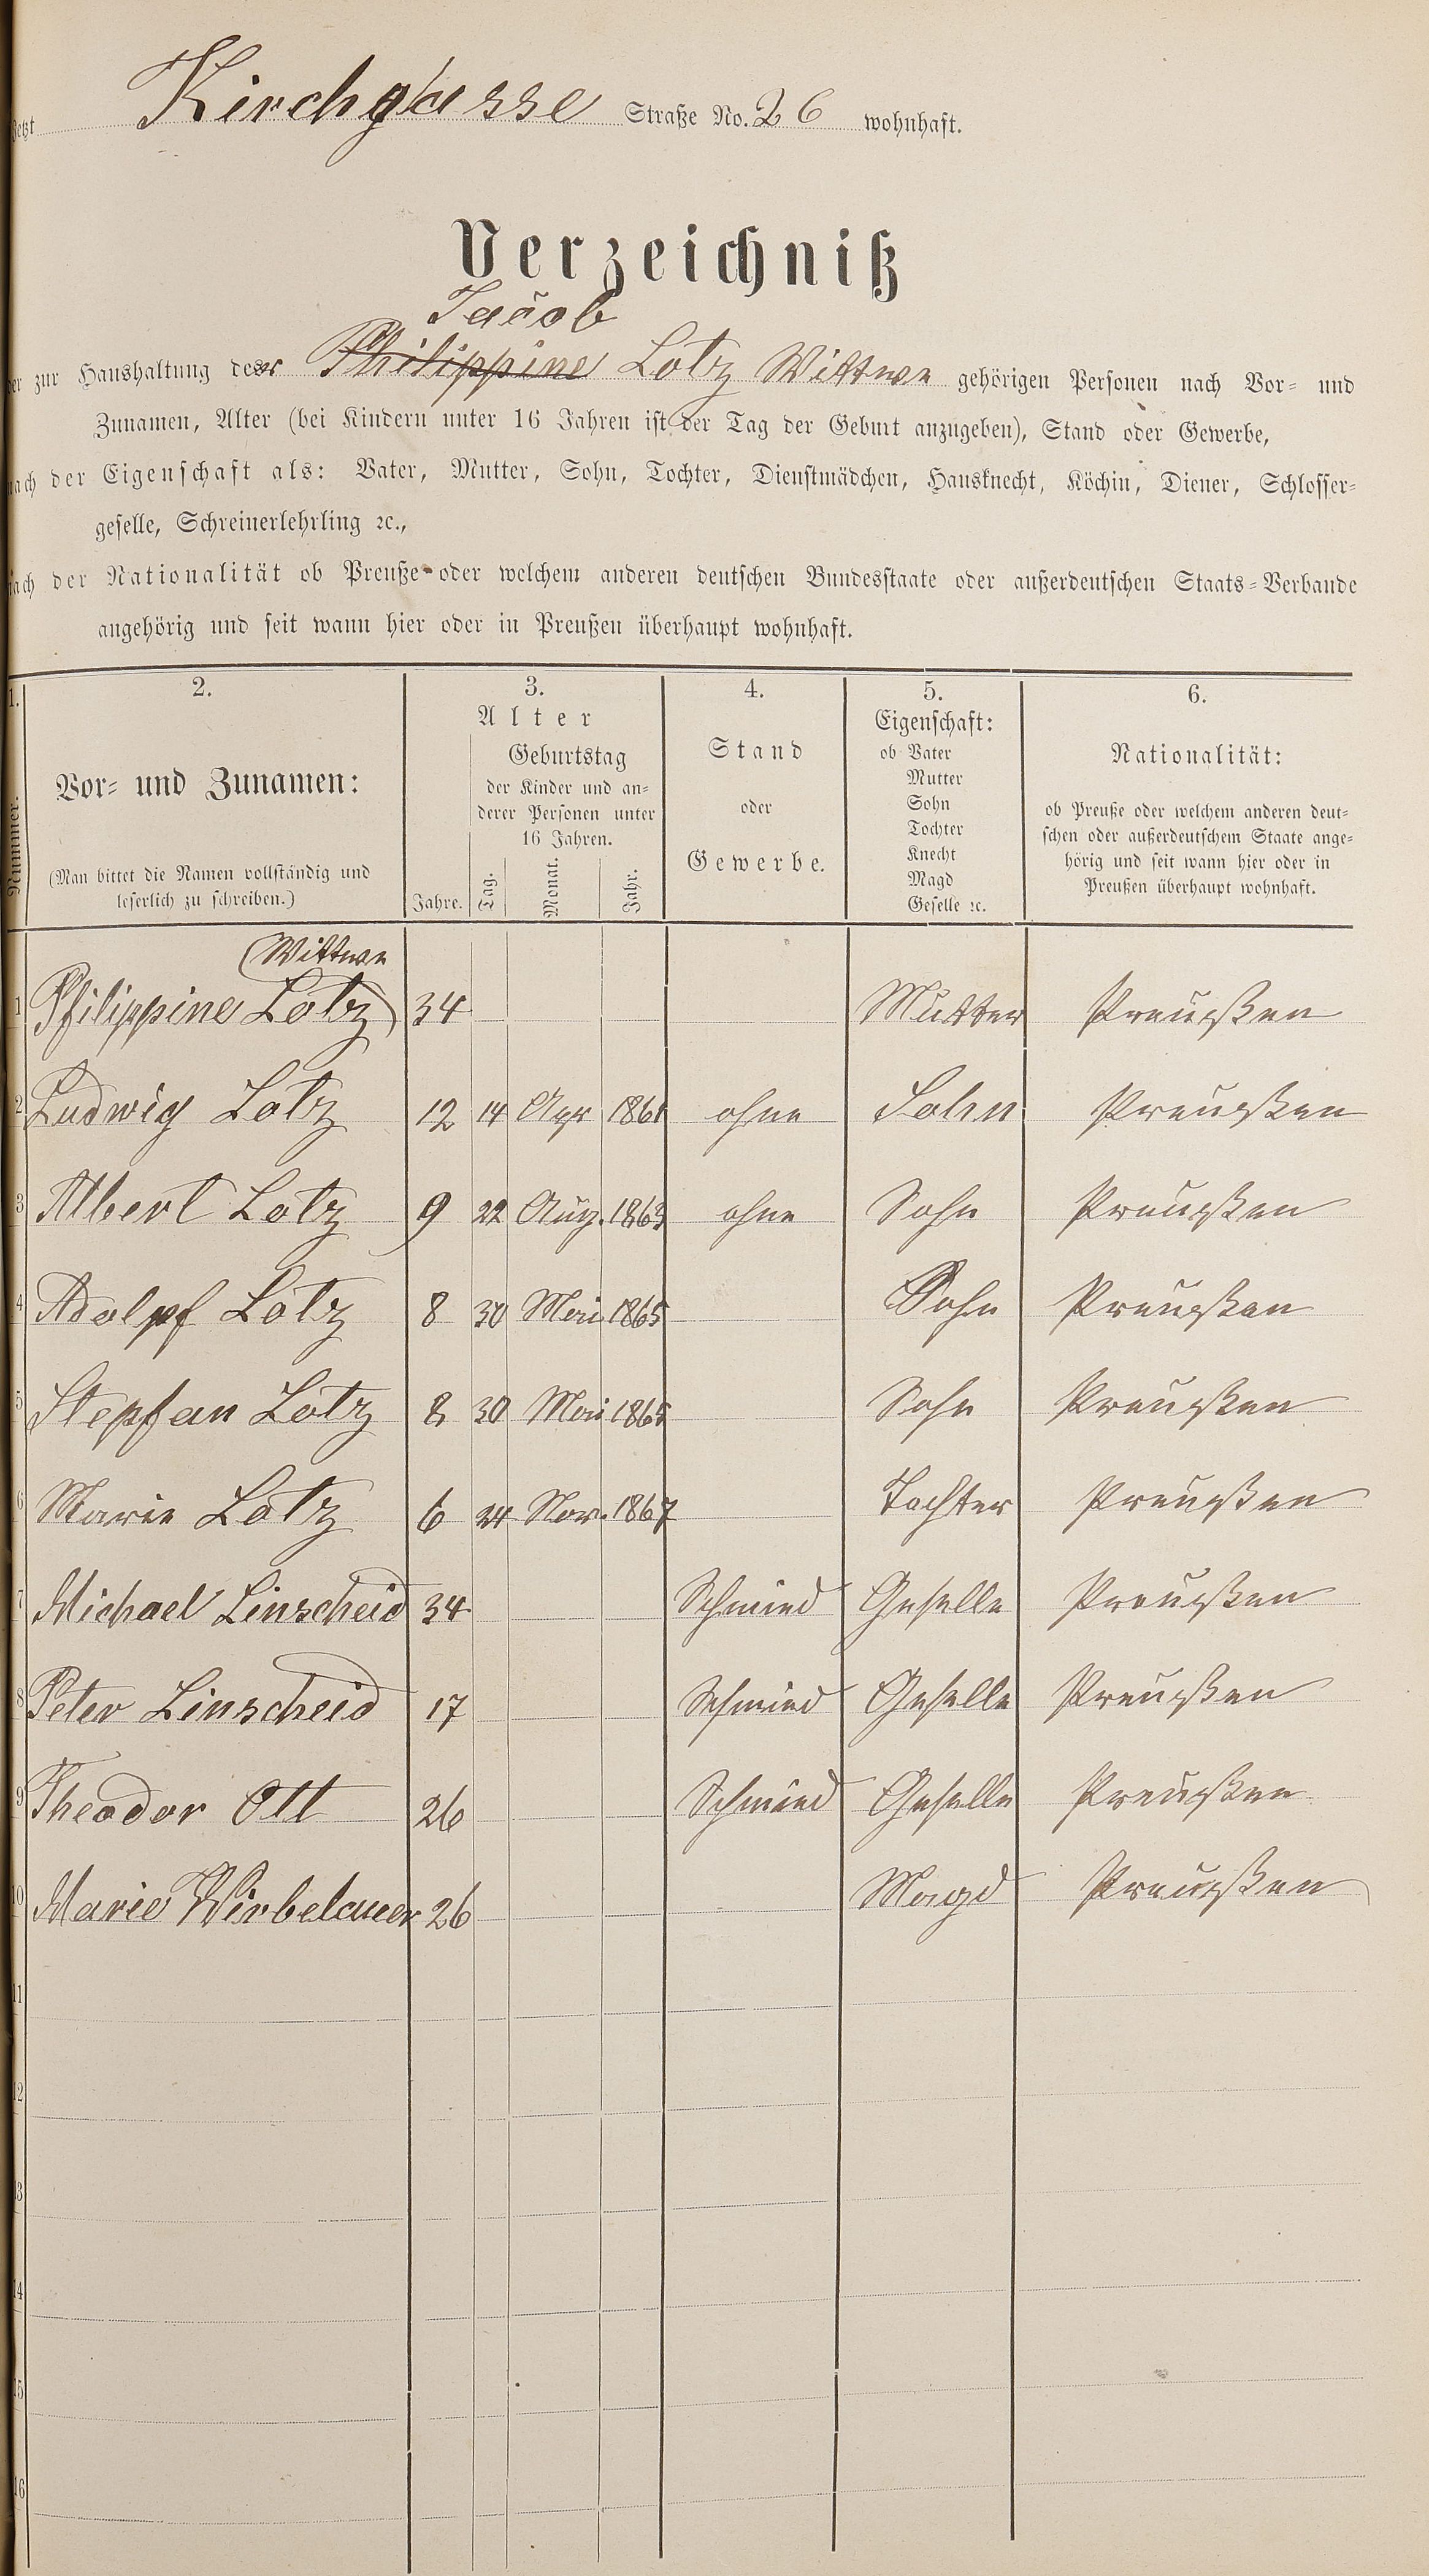 jetzt Kirchgasse Straße No. 26 wohnhaft.
Verzeichniß
Jacob
der zur Haushaltung der Philippine Lotz Wittwe gehörigen Personen nach Vor- und
Zunamen, Alter (bei Kindern unter 16 Jahren ist der Tag der Geburt anzugeben), Stand oder Gewerbe,
nach der Eigenschaft als: Vater, Mutter, Sohn, Tochter, Dienstmädchen, Hausknecht, Köchin, Diener, Schlosser-
geselle, Schreinerlehrling ꝛc.,
nach der Nationalität ob Preuße oder welchem anderen deutschen Bundesstaate oder außerdeutschen Staats-Verbande
angehörig und seit wann hier oder in Preußen überhaupt wohnhaft.
1. 2. 3. 4. 5. 6.
Nummer.
Vor- und Zunamen:
(Man bittet die Namen vollständig und
leserlich zu schreiben.)
Alter
Jahre.
Geburtstag
der Kinder und an-
derer Personen unter
16 Jahren.
Tag. Monat. Jahr.
Stand
oder
Gewerbe.
Eigenschaft:
ob Vater
Mutter
Sohn
Tochter
Knecht
Magd
Geselle ꝛc.
Nationalität:
ob Preuße oder welchem anderen deut-
schen oder außerdeutschem Staate ange-
hörig und seit wann hier oder in
Preußen überhaupt wohnhaft.
(Wittwe
1 Philippine Lotz) 34 Mutter Preußen
2 Ludwig Lotz 12 14 Apr 1861 ohne Sohn Preußen
3 Albert Lotz 9 22 Aug. 1863 ohne Sohn Preußen
4 Adolpf Lotz 8 30 Mai 1865 Sohn Preußen
5 Stepfan Lotz 8 30 Mai 1865 Sohn Preußen
6 Marie Lotz 6 24 Nov. 1867 Tochter Preußen
7 Michael Linscheid 34 Schmied Geselle Preußen
8 Peter Linscheid 17 Schmied Geselle Preußen
9 Theodor Ott 26 Schmied Geselle Preußen
10 Marie Wirbelauer 26 Magd Preußen
11
12
13
14
15
16